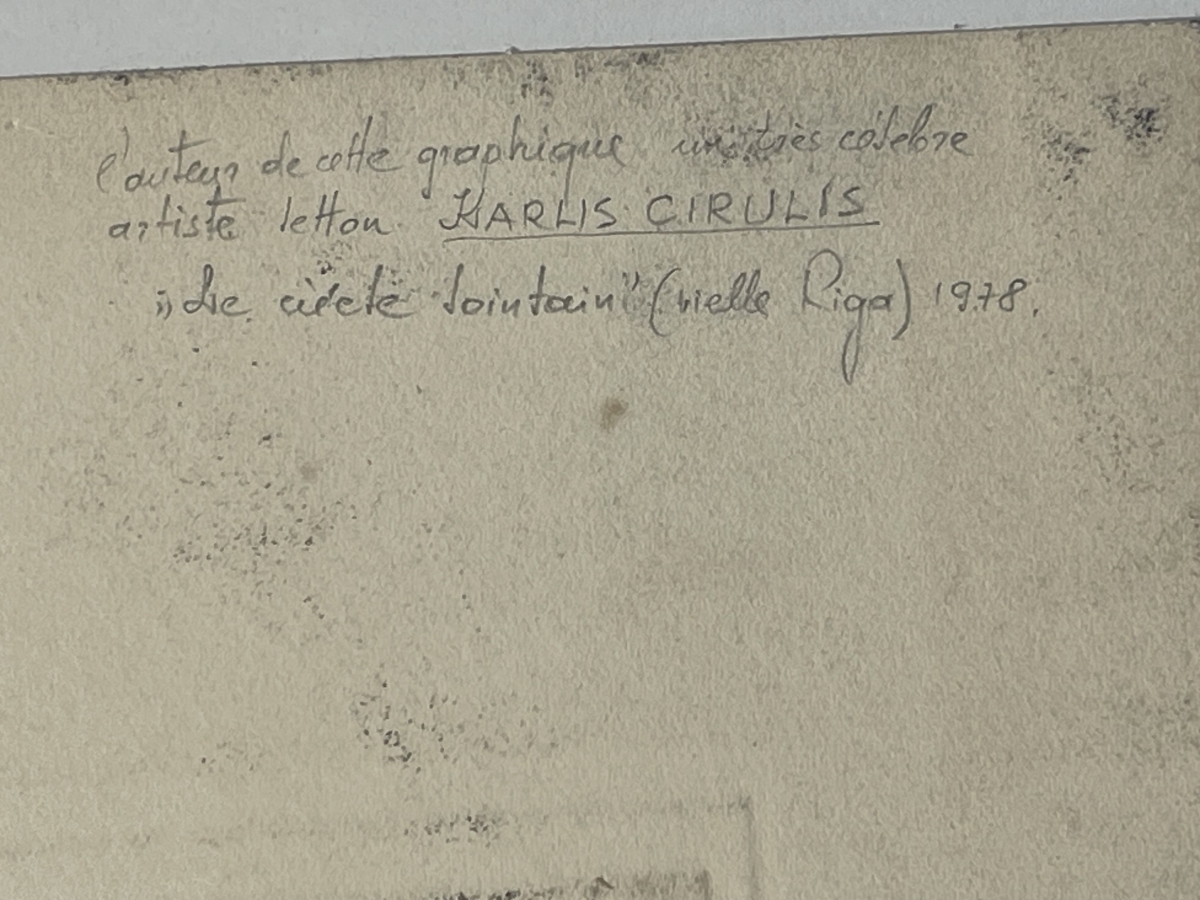 l'auteur de cette graphique un très célèbre
artiste letton KARLIS CIRULIS
„Le lointain” (vielle Riga) 1978.